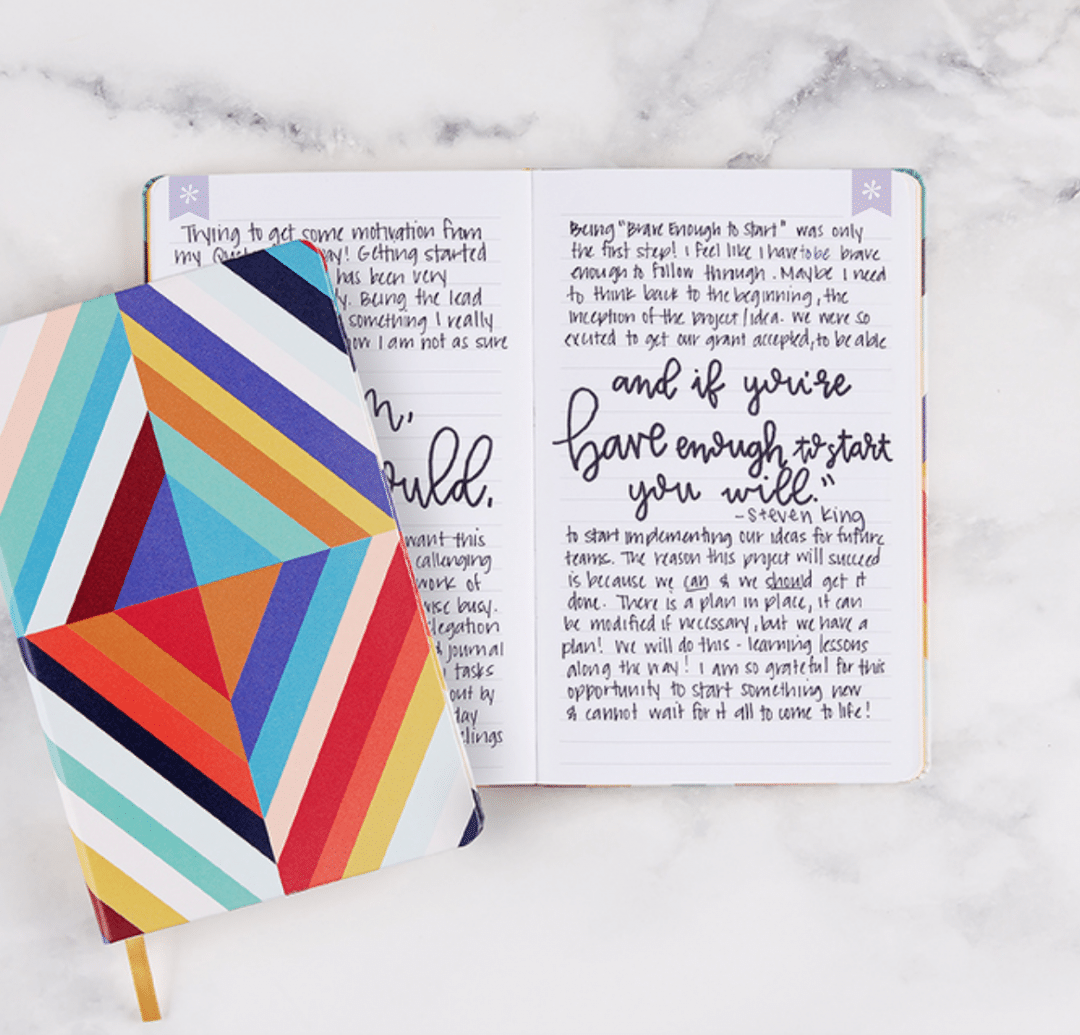 Trying to get some motivation from
my ay! Getting started
has been very
y. Being the lead
something I really
I am not as sure
n,
ould,
want this
callenging
work of
busy.
legation
journal
tasks
out by
day
elings
Being "Brave Enough to Start" was only
the first step! I feel like I have to be brave
enough to follow through. Maybe I need
to think back to the beginning, the
inception of the project/idea. We were so
excited to get our grant accepted, to be able
and if you're
brave enough to start
you will."
-Steven King
to start implementing our ideas for future
teams. The reason this project will succeed
is because we can & we should get it
done. There is a plan in place, it can
be modified if necessary, but we have a
plan! We will do this - learning lessons
along the way! I am so grateful for this
opportunity to start something new
& cannot wait for it all to come to life!